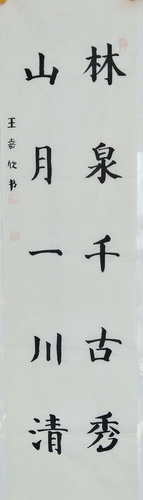 林泉千古秀
山月一川清
王幸欣书